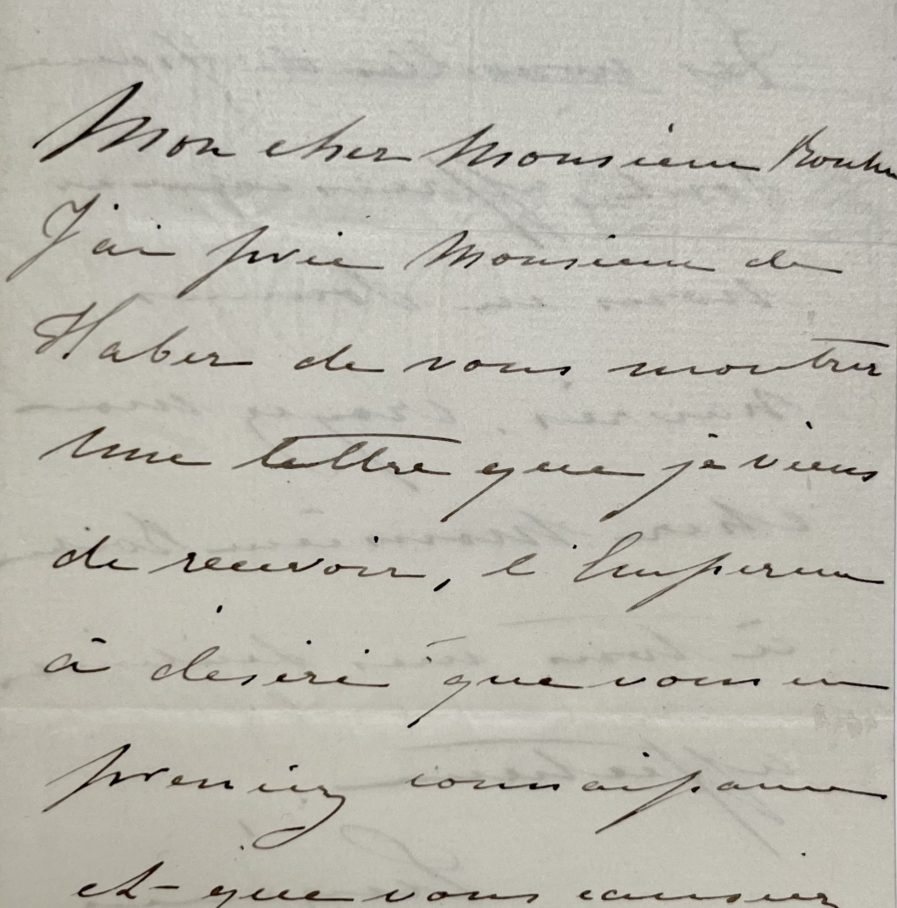 Mon cher Monsieur Rouher
J'ai prié Monsieur de
Haber de vous montrer
une lettre que je viens
de recevoir, l'Empereur
à desiré que vous en
preniez connaissance
et que vous causiez